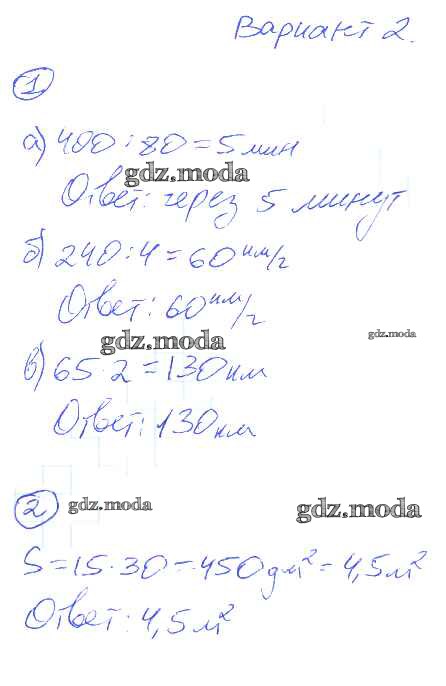 Вариант 2.
1
а) 400 : 80 = 5 мин
gdz.moda
Ответ: через 5 минут
б) 240 : 4 = 60 км/ч
Ответ: 60 км/ч
gdz.moda
gdz.moda
в) 65 · 2 = 130 км
Ответ: 130 км
2
gdz.moda
gdz.moda
S = 15 · 30 = 450 дм² = 4,5 м²
Ответ: 4,5 м²